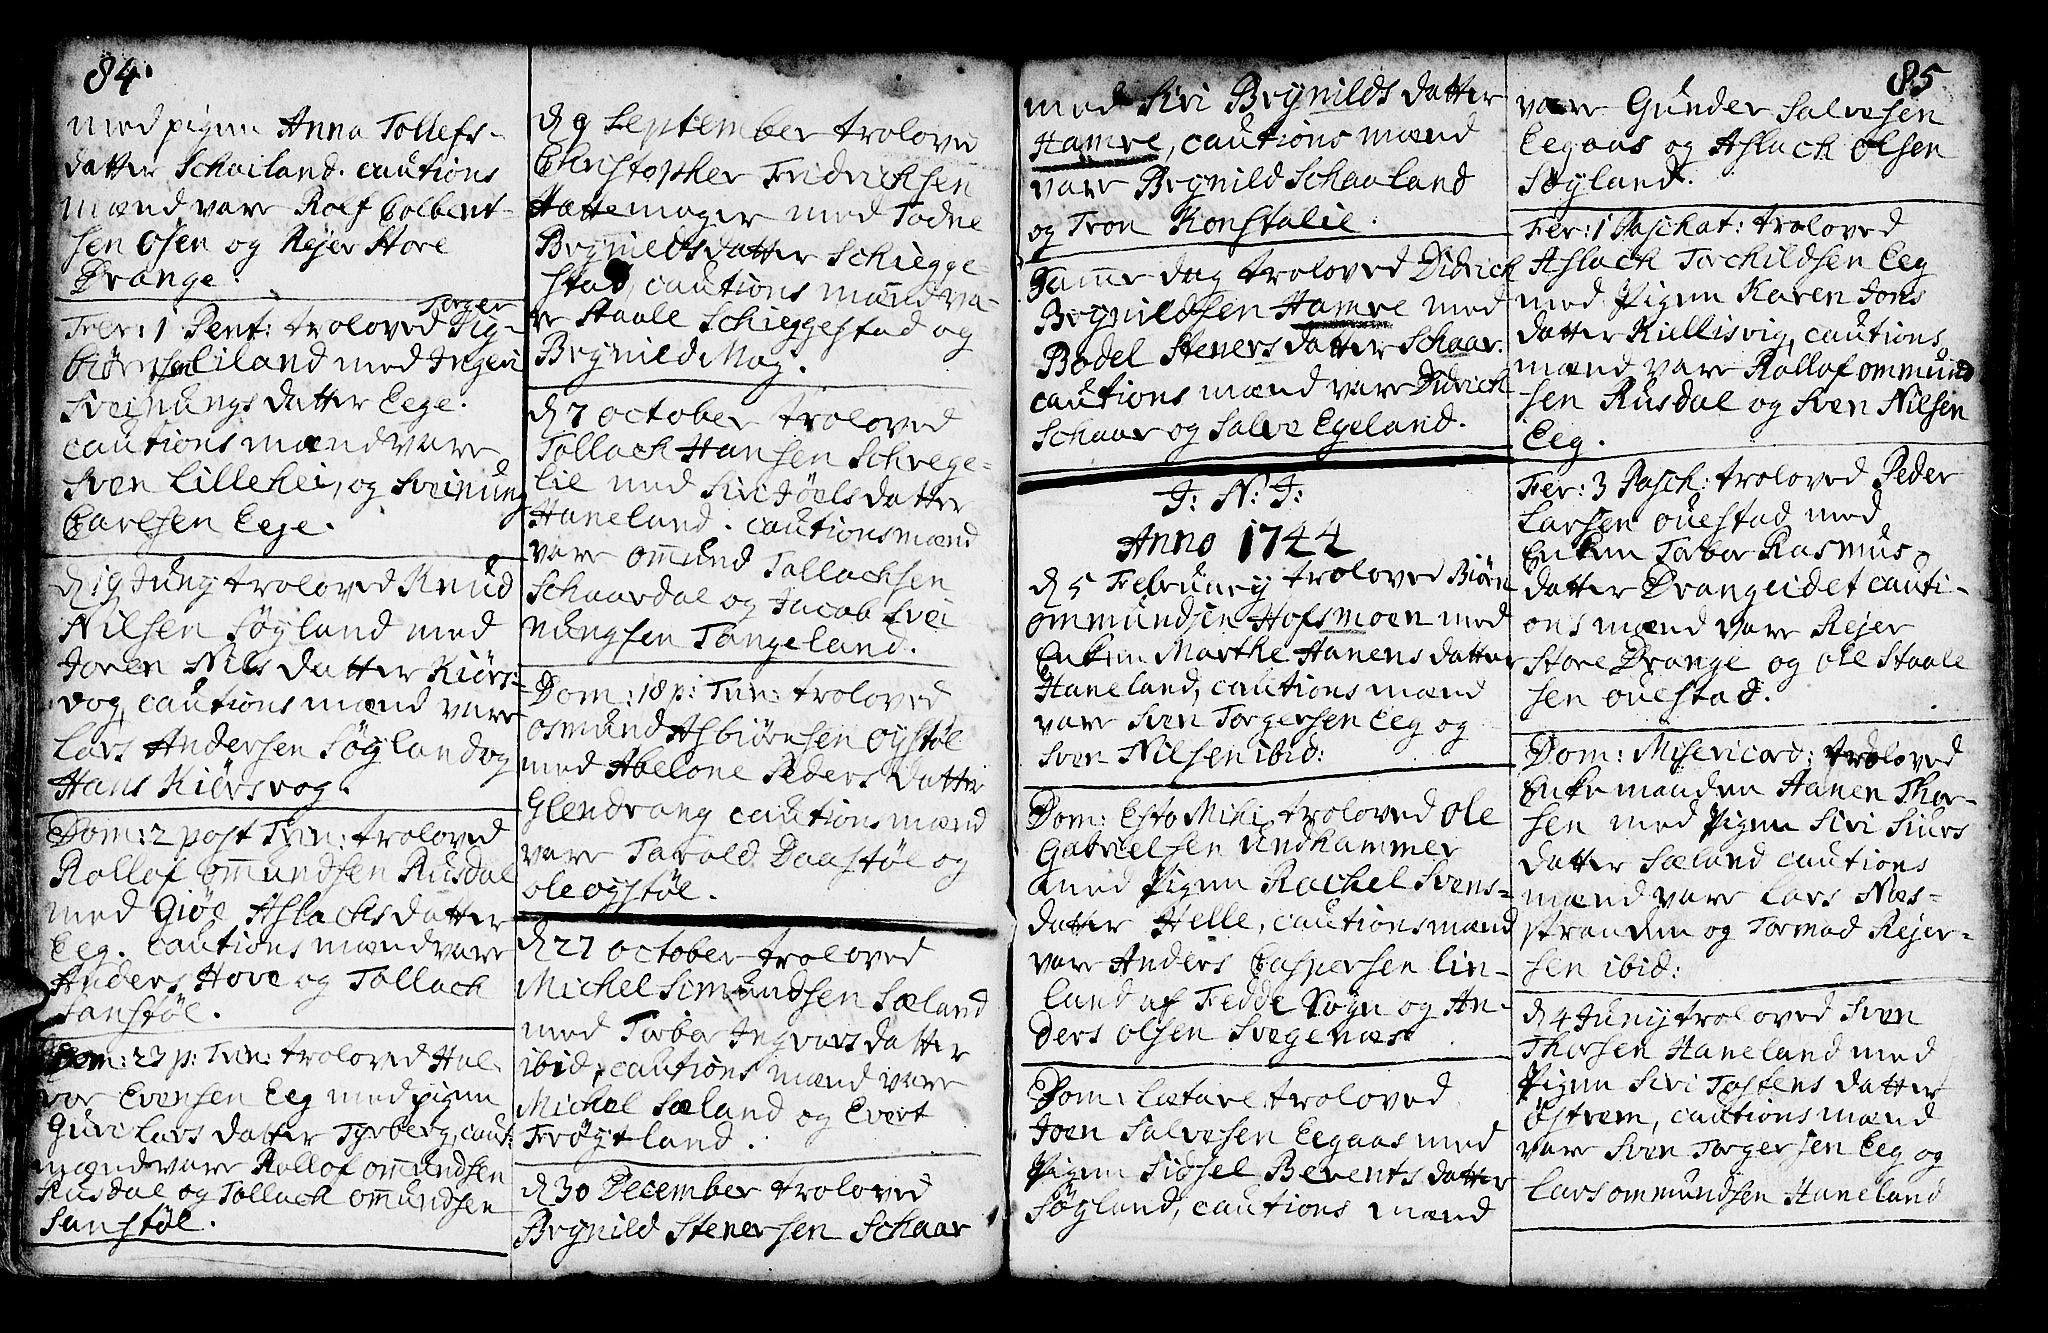 84.
med pigen Anna Tollefs-
datter Schailand. cautions
mænd vare Roef Colbent-
sen Osen og Rejer Store
Drange.
Torger
Fer: 1 Pent: troloved Sig-
biørnsen Eiland med Ingeri
Sveinungs datter Eege.
cautions mænd vare
Sven Lillehei, og Sveinung
Carlsen Eege.
d 19 Juny troloved Knud
Nilsen Søyland med
Joren Nils datter Kiørs-
vog, cautions mænd vare
Lars Andersen Søyland og
Hans Kiørsvog.
Dom: 2 post Trin: troloved
Rollof Om̄undsen Rusdal
med Giøe Aslachs datter
Eeg. cautions mænd vare
Anders Hove og Tollach
Sanstøl.
Dom: 23 p: Trin: troloved Hal-
vor Evensen Eeg med pigen
Guri Lars datter Tyrberg, caut:
mænd vare Rollof Om̄undsen
Rusdal og Tollach Om̄undsen
Sanstøl.
d 9 September troloved
Christopher Fridrichsen
Hattemager med Todne
Brynilds datter Schiegge-
stad, cautions mænd va-
re Staale Schieggestad og
Brynild Mog.
d 7 October troloved
Tollach Hansen Schrege-
lie med Siri Joels datter
Haneland. cautionsmænd
vare Om̄und Tollachsen
Schaardal og Jacob Svei
nungsen Tangeland.
Dom: 18 p: Trin: troloved
Osmund Asbiørnsen Oystøl
med Abelone Peders datter
Glendrang cautions mænd
vare Tarald Daastøl og
Ole Oystøl.
d 27 October troloved
Michel Simundsen Sæland
med Torbor Ingvars datter
ibid, cautions mænd vare
Michel Sæland og Evert
Frøytland.
d 30 December troloved
Brynild Stenersen Schaar
85
med Siri Brynilds datter
Hamre, cautions mænd
vare Brynild Schaaland
og Tron Konstalie.
Sam̄e dag troloved Didrich
Brynildsen Hamre med
Bodel Steners datter Schaar.
cautions mænd vare Didrich
Schaar og Salve Egeland.
J: N: J:
Anno 1744
d 5 February troloved Biørn
Ommundsen Hofsmoen med
Enken Marthe Hanens datter
Haneland, cautions mænd
vare Sven Torgersen Eeg og
Sven Nilsen ibid:
Dom: Esto Mihi troloved Ole
Gabrielsen Undhammer
med Pigen Rachel Svens-
datter Helle, cautions mænd
vare Anders Caspersen Lin-
land af Fedde Sogn og An-
ders Olsen Svegenæs
Dom: Lætare troloved
Joen Salvesen Eegaas med
Pigen Sidsel Berents datter
Søyland, cautions mænd
vare Gunder Salvesen
Eegaas og Aslach Olsen
Søyland.
Fer: 1 Paschat: troloved
Aslach Torchildsen Eeg
med Pigen Karen Jons
datter Kullisvig, cautions
mænd vare Rollof Ommund
sen Rusdal og Sven Nilsen
Eeg.
Fer: 3 Pasch: troloved Peder
Larsen Ouestad med
Enken Torbor Rasmus-
datter Drangeidet cauti-
ons mænd vare Rejer
Store Drange og Ole Staale
sen Ouestad.
Dom: Misericord: troloved
Enkemanden Hanen Thor-
sen med Pigen Siri Siurs
datter Sæland cautions
mænd vare Lars Næs-
stranden og Tormod Rejer-
sen ibid:
d 4 Juny troloved Sven
Thorsen Haneland med
Pigen Siri Tostens datter
Østrem, cautions mænd
vare Sven Torgersen Eeg og
Lars Ommundsen Haneland